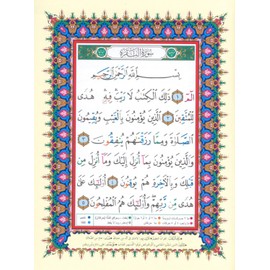 سورة البقرة
بسم الله الرحمن الرحيم
الم ذلك الكتاب لا ريب فيه هدى
للمتقين الذين يؤمنون بالغيب ويقيمون
الصلاة ومما رزقناهم ينفقون
والذين يؤمنون بما أنزل إليك وما أنزل من
قبلك وبالآخرة هم يوقنون أولئك على
هدى من ربهم وأولئك هم المفلحون